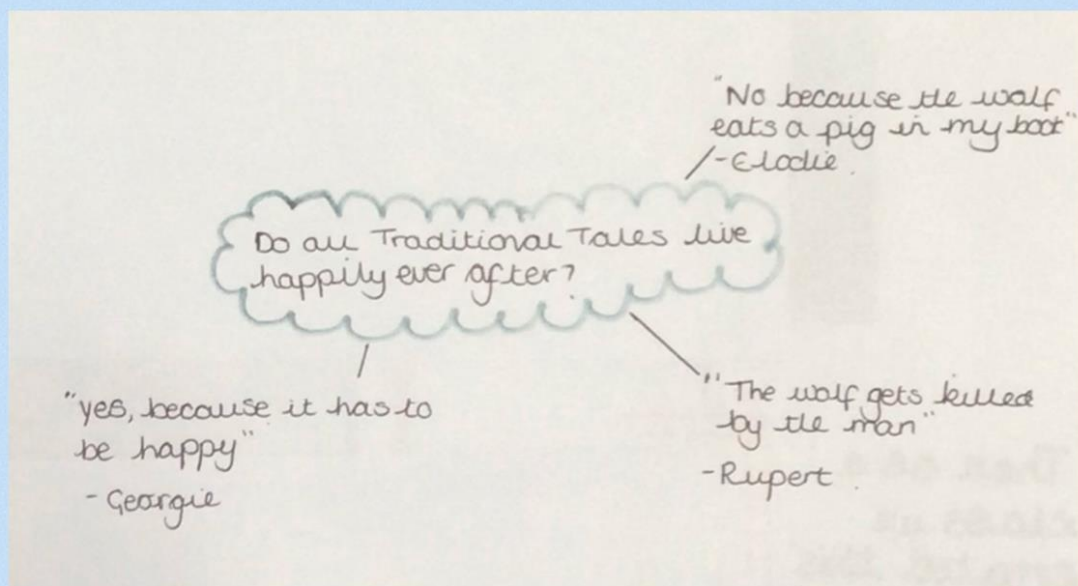 "No because the wolf
eats a pig in my book"
-Elodie.
Do all Traditional Tales live
happily ever after?
"yes, because it has to
be happy"
-Georgie
"The wolf gets killed
by the man"
-Rupert.